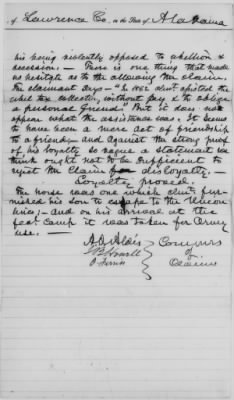 of Lawrence Co. in the State of Alabama
his being violently opposed to rebellion &
secession. — There is one thing that made
us hesitate as to the allowing the claim.
The claimant says — "In 1862 clmt assisted the
tax collector, without pay & to oblige
a personal friend." But it does not
appear what the assistance was. It seems
to have been a mere act of friendship
to a friend — and against the strong proof
of his loyalty so vague a statement we
think ought not to be sufficient to
reject the claim for disloyalty. —
Loyalty proved.
The horse was one which clmt fur-
nished his son to escape to the Union
lines; — and on his arrival at the
camp it was taken for Army
use. —
A. O. Aldis
J B Howell
O. Ferriss
Commrs
of
Claims